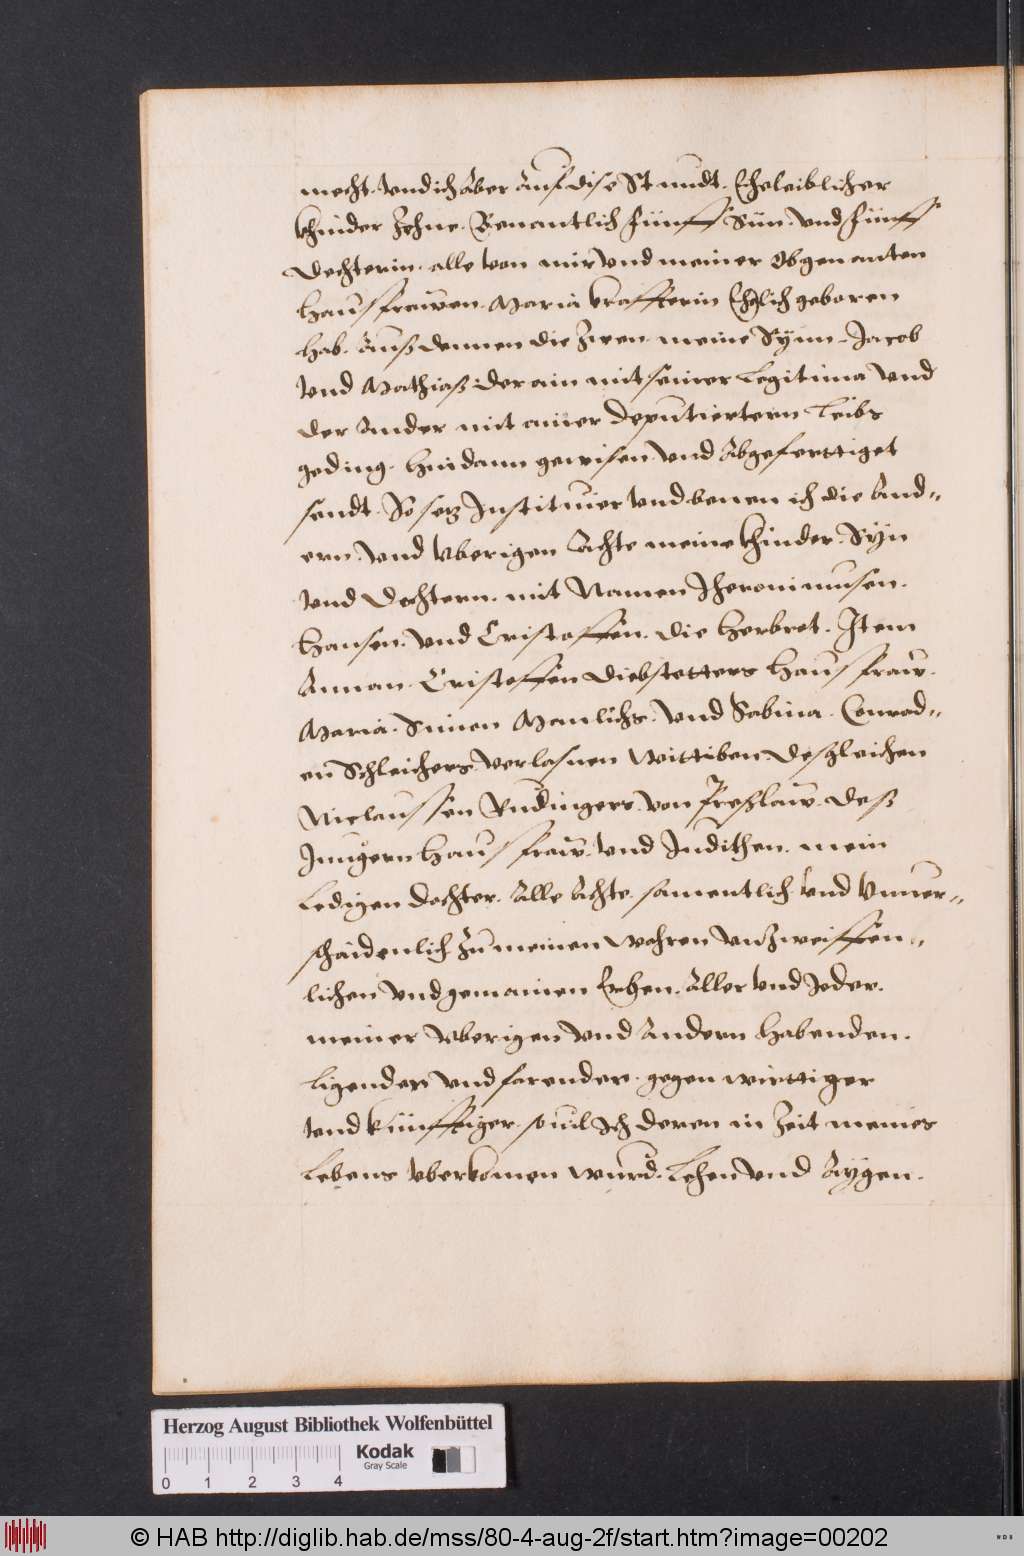 mecht. Und ich Aber Auf dise Stundt. Eheleiblicher
Khinder Zehne. Benantlich Fünff Sün. und Fünff
Dechterin. alle von mir Vnd meiner Obgenanten
Hausfrawen. Maria Krafftterin Ehelich geboren
hab. Auß dennen die Zwen. meine Synn. Jacob
Vnd Mathias der ain mit seiner Legitima Vnd
der Ander mit ainer deputiertern Leibs
geding. hindann gewisen. Vnd Abgeferttiget
sendt. So setz Instituier Vnd benen ich die And=
ern. Vnd Vberigen Achte meine Khinder. Syn
Vnd Dechtern. mit Namen Jheronimusen.
Hansen. Vnd Cristoffen. die Herbrot. Item
Annan. Cristoffen Diebstetters Hausfraw.
Maria. Simen Manlichs. Vnd Sabina. Conrad=
en Schleichers. Verlasnen Wittiben. Desgleichen
Niclaussen Rudingers. von Preßlaw. deß
Jungern Hausfraw. Vnd Judithen. mein
Ledigen Dochter. Alle Achte. samentlich. Vnd Vnuer=
schaidenlich Zu meinen Wahren Vnzweiffen=
lichen Vnd gemainen Erben. Aller Vnd Jeder.
meiner Vberigen Vnd Andern Habenden.
Ligenden Vnd farenden. gegenwirttiger
Vnd künfftiger. souil Ich deren in Zeit meines
Lebens Vberkomen wurd. Lehen Vnd Aygen.
Herzog August Bibliothek Wolfenbüttel
Kodak
Gray Scale
0 1 2 3 4
© HAB http://diglib.hab.de/mss/80-4-aug-2f/start.htm?image=00202